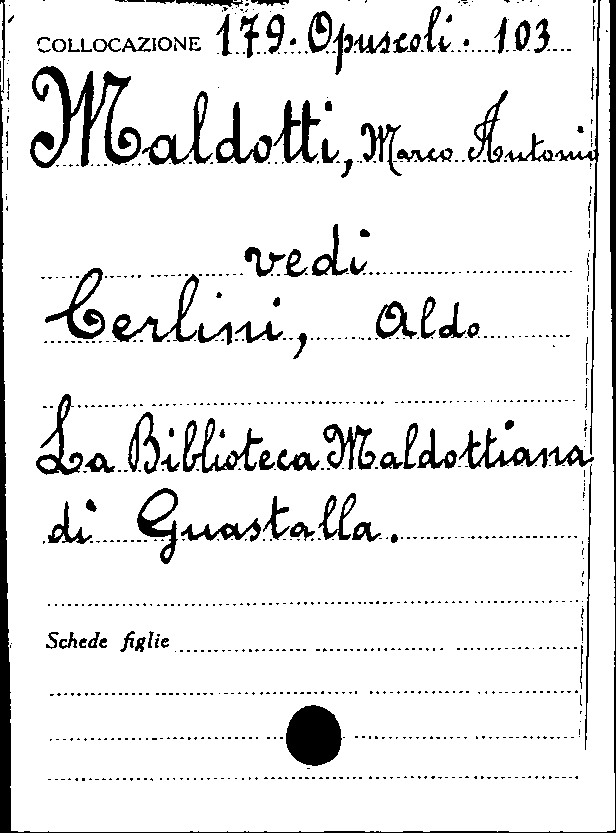 COLLOCAZIONE 179. Opuscoli. 103
Maldotti, Marco Antonio
vedi
Cerlini, Aldo
La Biblioteca Maldottiana
di Guastalla.
Schede figlie